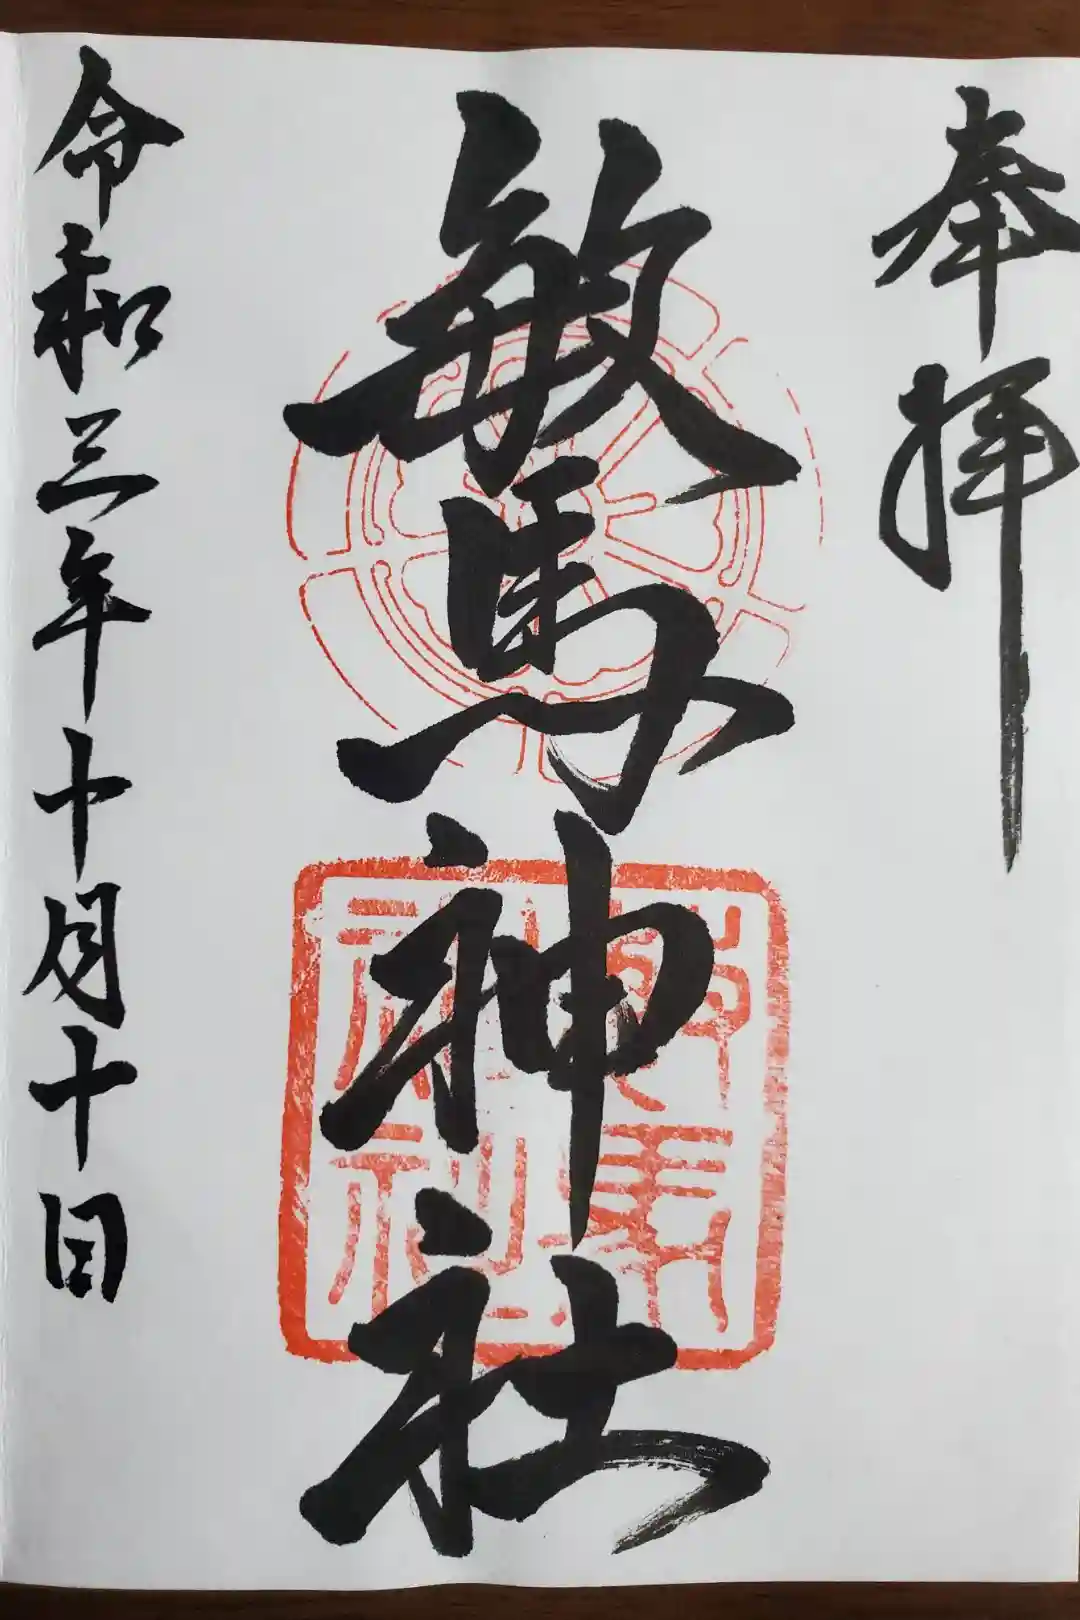 奉拝
敏馬神社
令和三年十月十日